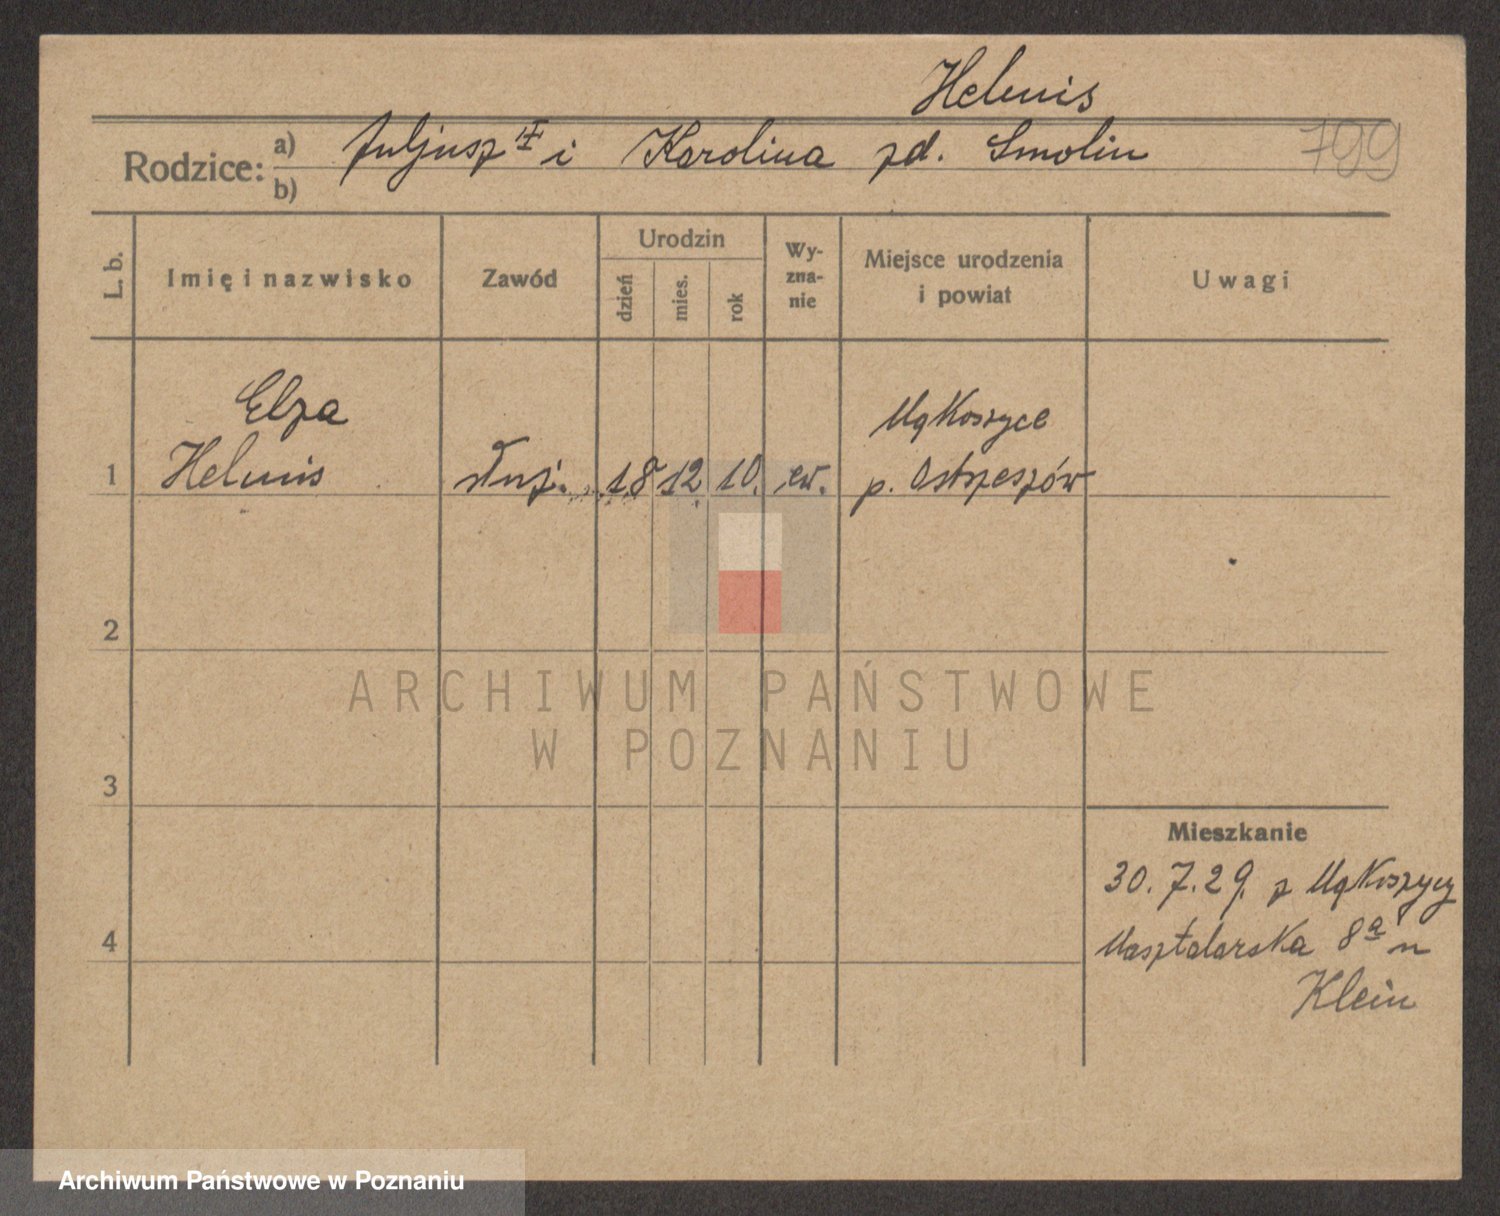 Helmis
Rodzice: a) Juljusz i Karolina zd. Smolin 799
b)
L. b. Imię i nazwisko Zawód Urodzin dzień mies. rok Wyznanie Miejsce urodzenia i powiat Uwagi
Elza Mąkoszyce
1 Helmis służ. 18 12 10. ew. p. Ostrzeszów
2
ARCHIWUM PAŃSTWOWE
W POZNANIU
3
Mieszkanie
30. 7. 29. z Mąkoszycy
4 Masztalarska 8a u
Klein
Archiwum Państwowe w Poznaniu